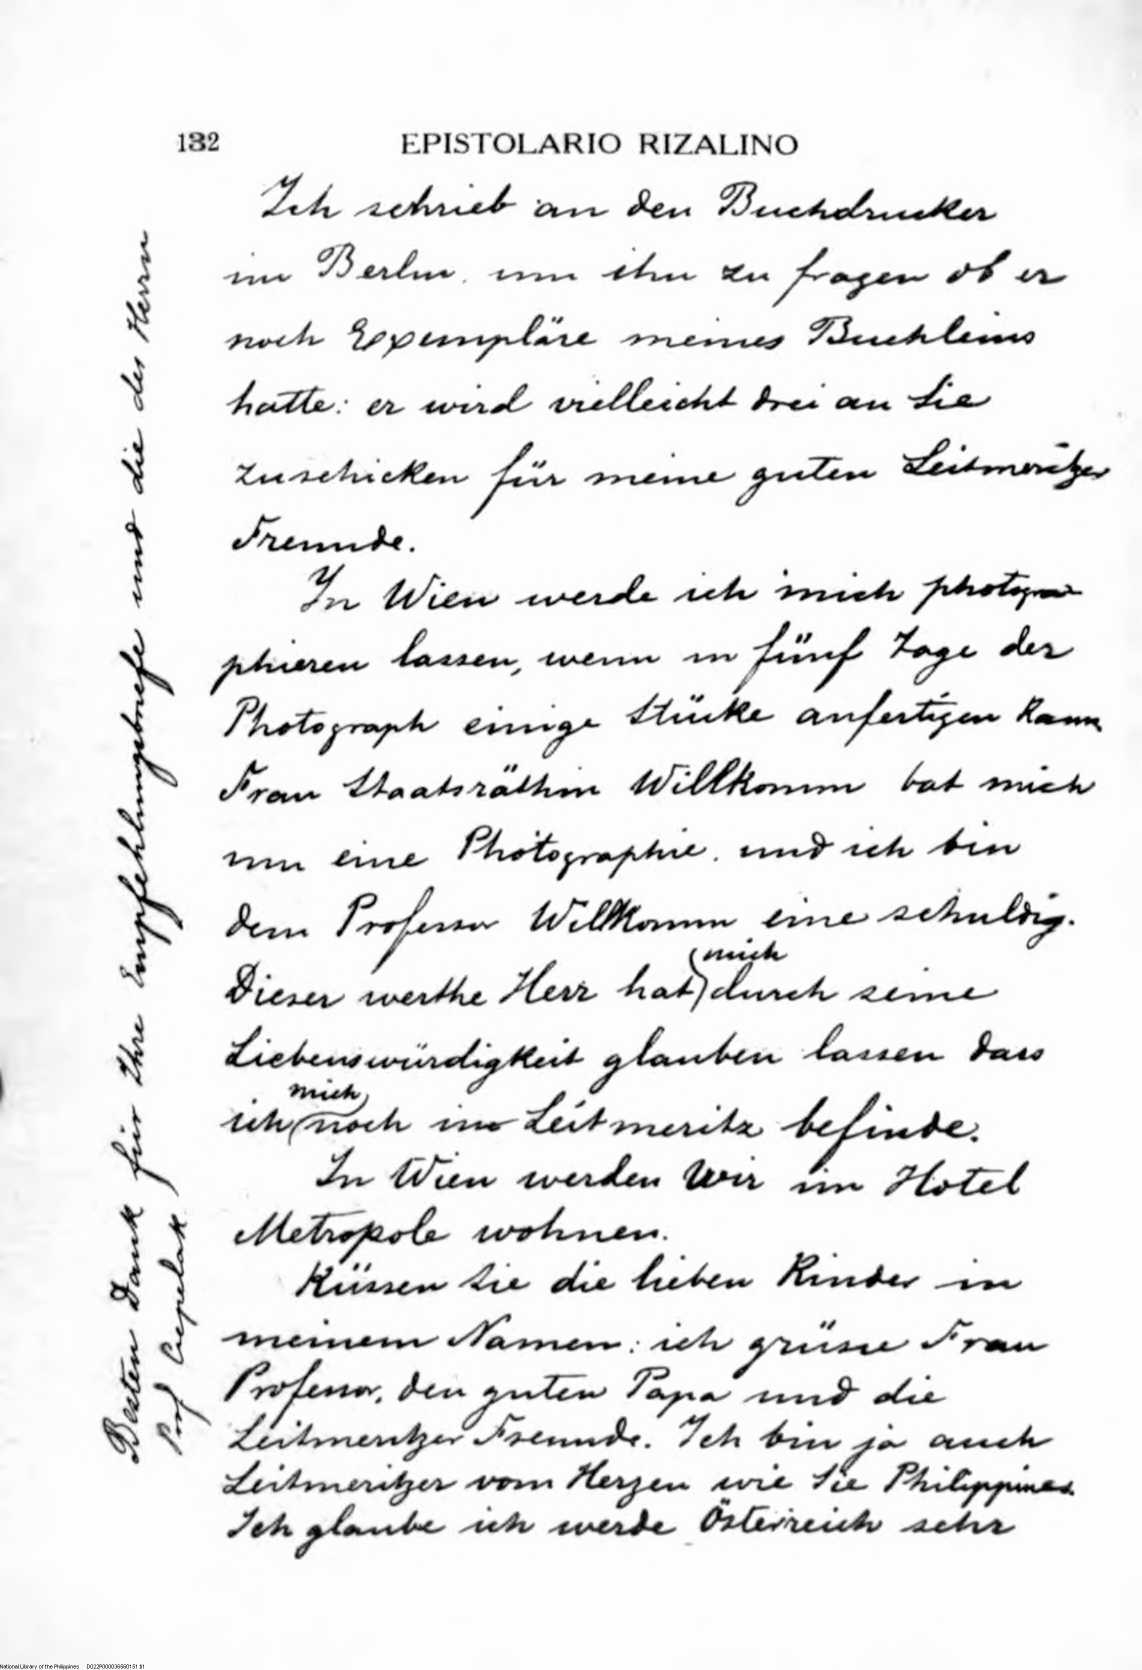 132
EPISTOLARIO RIZALINO
Ich schrieb an den Buchdrucker
im Berlin um ihn zu fragen ob er
noch Exempläre meines Buchleins
hatte: er wird vielleicht drei an Sie
zuschicken für meine guten Leitmeritzer
Freunde.
In Wien werde ich mich photogra-
phieren lassen, wenn in fünf Tage der
Photograph einige Stücke anfertigen kann
Frau Staatsräthin Willkomm bat mich
um eine Photographie. und ich bin
dem Professor Willkomm eine schuldig.
mich
Dieser werthe Herr hat durch seine
Liebenswürdigkeit glauben lassen dass
mich
ich noch in Leitmeritz befinde.
In Wien werden wir im Hotel
Metropole wohnen.
Küssen Sie die lieben Kinder in
meinem Namen: ich grüsse Frau
Professor, den guten Papa und die
Leitmeritzer Freunde. Ich bin ja auch
Leitmeritzer vom Herzen wie Sie Philippines.
Ich glaube ich werde Österreich sehr
Besten Dank für Ihre Empfehlungsbriefe und die des Herrn
Prof Czepelak
National Library of the Philippines